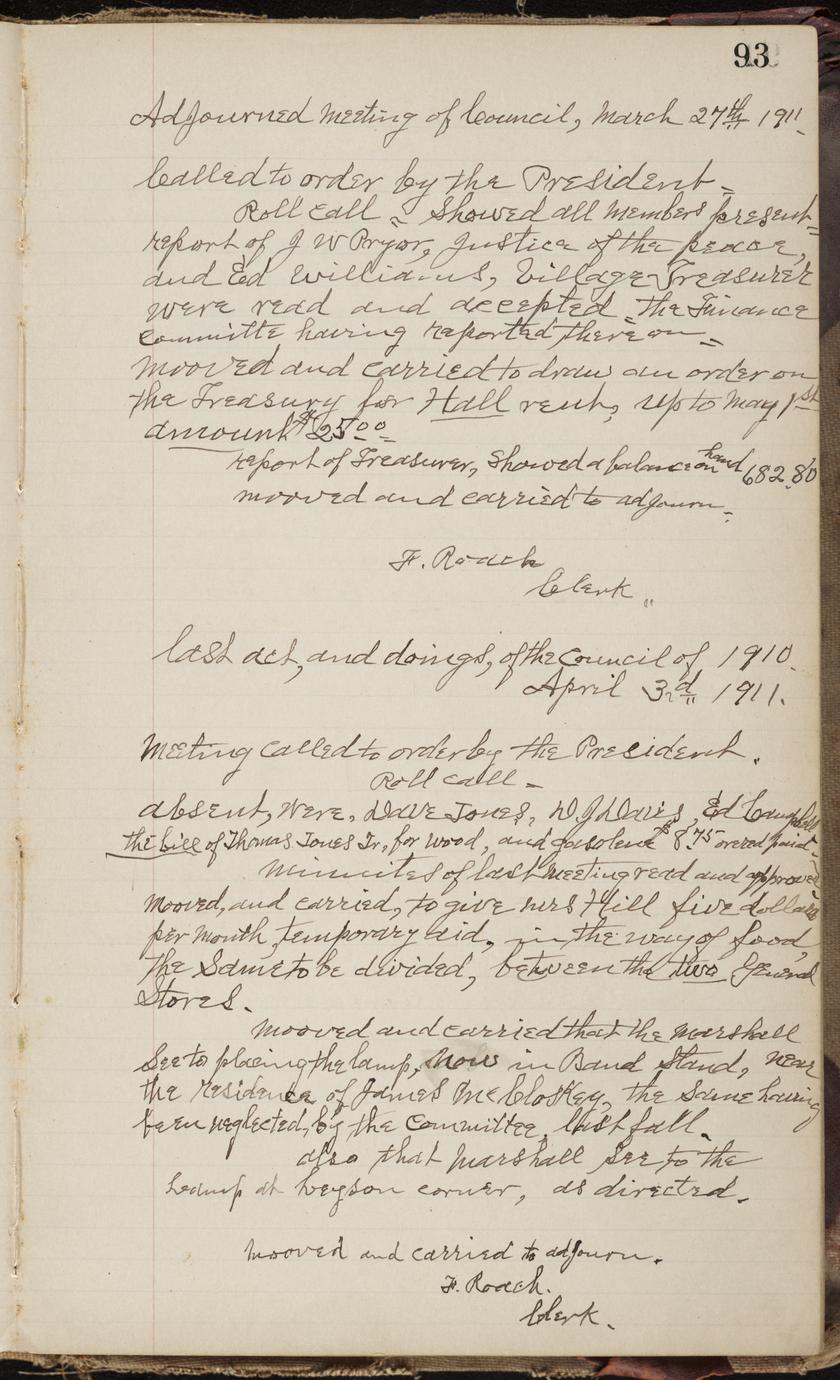 93
Adjourned meeting of Council, March 27th 1911.
Called to order by the President -
Roll call - Showed all members present -
report of J W Pryor, Justice of the peace,
and Ed Williams, Village Treasurer
were read and accepted - the Finance
committe having reported there on -
mooved and carried to draw an order on
the Treasury for Hall rent, up to May 1st
amount $25.00 -
report of Treasurer, Showed a balance on hand 682.80
mooved and carried to adjourn -
F. Roach
Clerk "
last act, and doings, of the Council of 1910.
April 3rd 1911.
Meeting called to order by the President.
Roll call -
absent, were, Dave Jones, D J Davis, Ed Campbell
the bill of Thomas Jones Jr, for wood, and gasolene $8.75 orered paid -
minnites of last meeting read and approved
mooved, and carried, to give mrs Hill five dollars
per month, temporary aid, in the way of food,
the Same to be divided, between the two General
Stores.
mooved and carried that the marshall
See to placing the lamp, now in Band Stand, near
the residence of James McCloskey, the same having
been neglected, by the Committee, last fall.
also that marshall See to the
Leamp at Leyson corner, as directed.
mooved and carried to adjourn.
F. Roach.
Clerk.